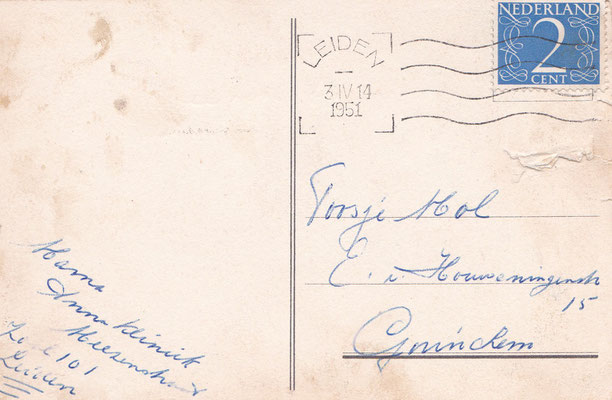 NEDERLAND
2
CENT
LEIDEN
3·IV 14
1951
Toosje Mol
E. v. Houweningenstr
15
Gorinchem
Mama
Anna Kliniek
Zaal 101
Leiden